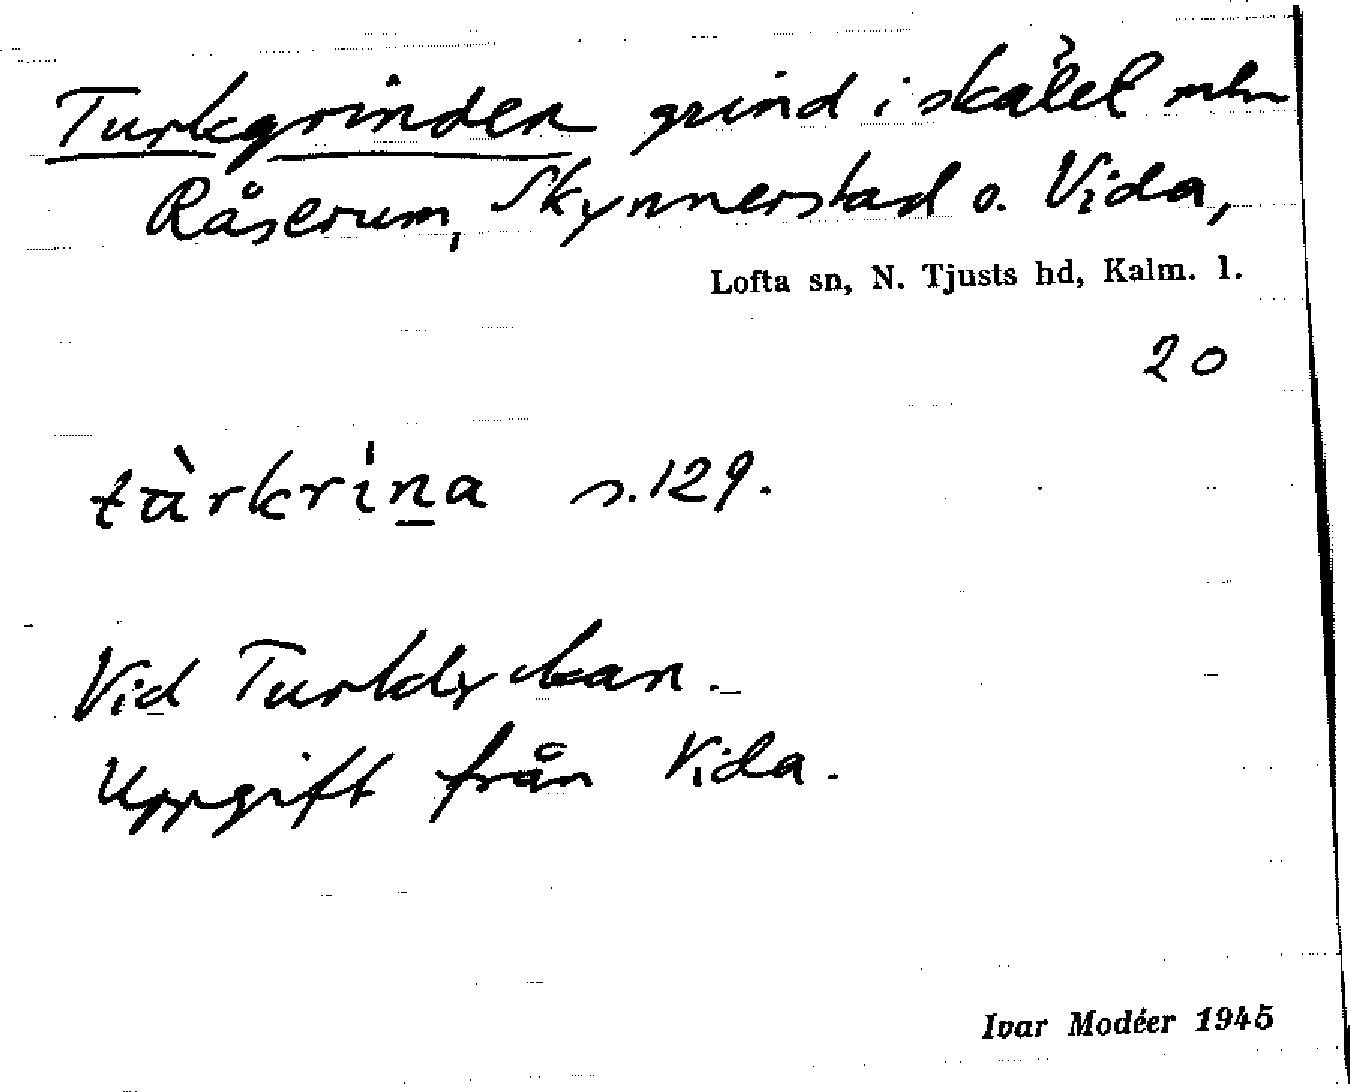 Turkgrinden grind i skälet mln
Råserum, Skynnerstad o. Vida,
Lofta sn, N. Tjusts hd, Kalm. l.
20
tùrkrina s. 129.
Vid Turkdyckan.
Uppgift från Vida.
Ivar Modéer 1945